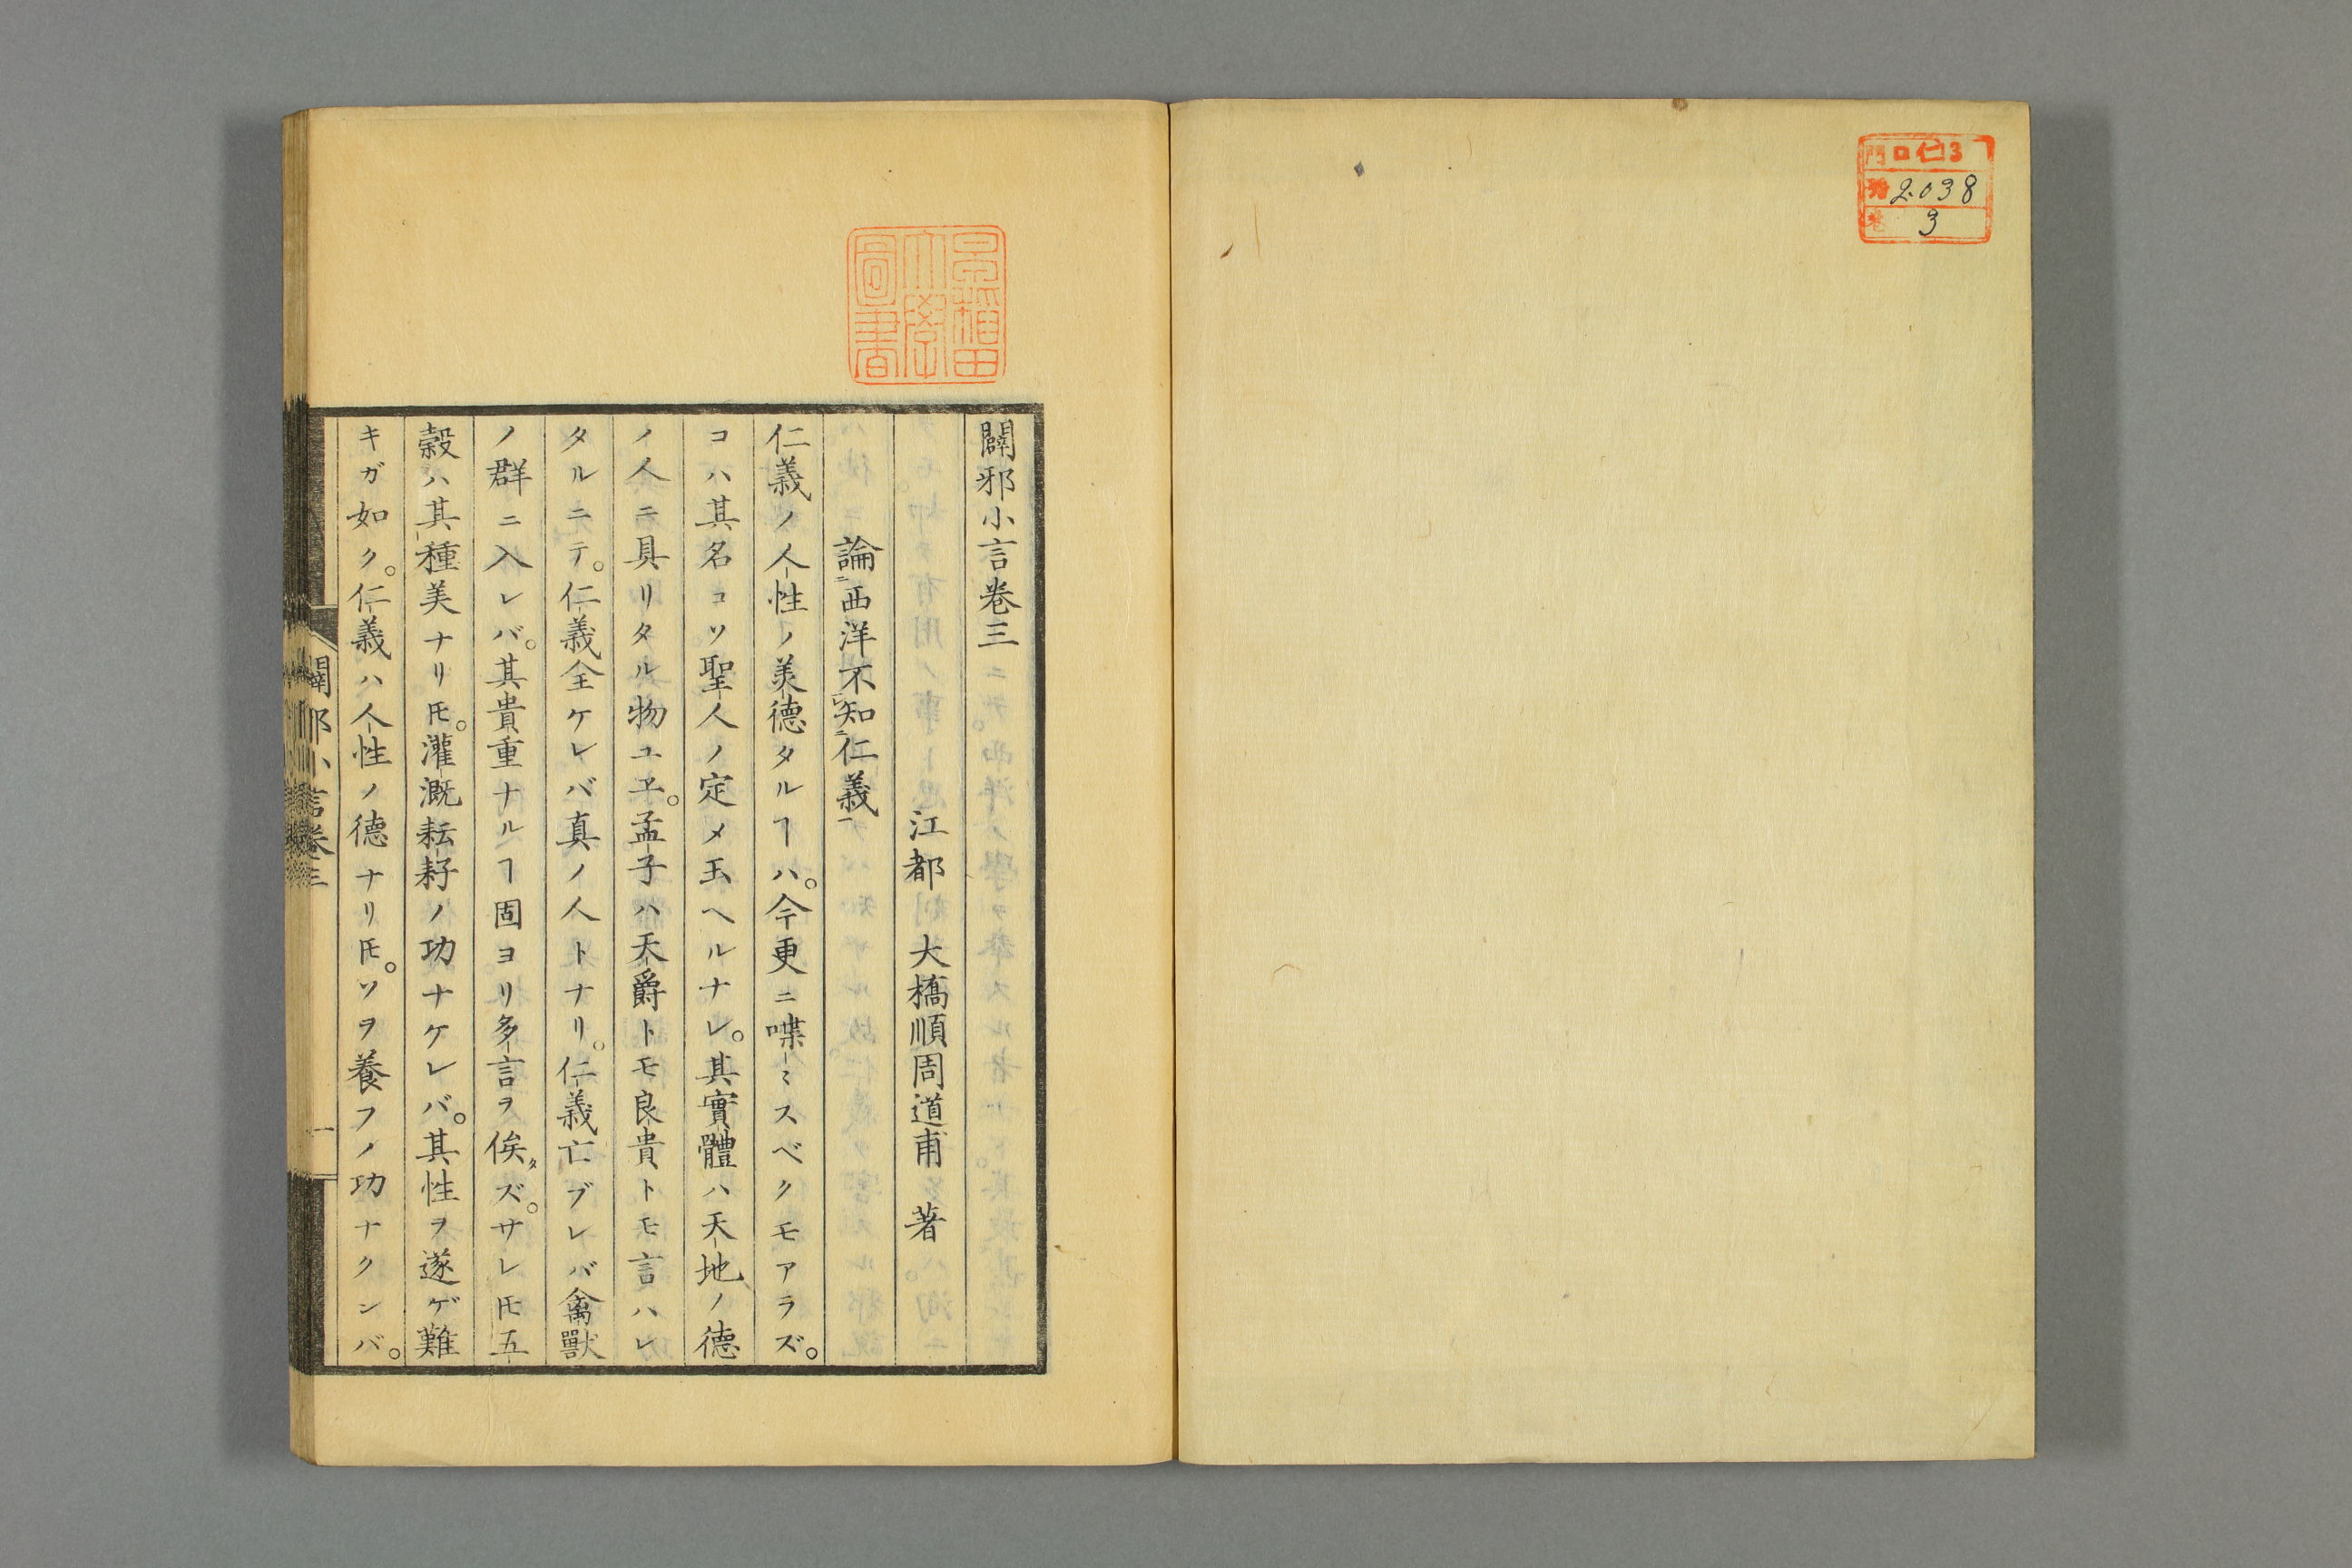 門 ロ仁3
号 2038
巻 3
早稲田
大學
圖書
闢邪小言卷三
江都 大橋順周道甫 著
論㆓西洋不㆒㆑知㆓仁義㆒
仁義ノ人性ノ美德タルヿハ。今更ニ喋〻スベクモアラズ。
コハ其名コソ聖人ノ定メ玉ヘルナレ。其實體ハ天地ノ德
ノ人ニ具リタル物ユヱ。孟子ハ天爵トモ良貴トモ言ハレ
タルニテ。仁義全ケレバ真ノ人トナリ。仁義亡ブレバ禽獸
ノ群ニ入レバ。其貴重ナルヿ固ヨリ多言ヲ俟タズ。サレ𪜈五
穀ハ其種美ナリ𪜈。灌漑耘耔ノ功ナケレバ。其性ヲ遂ゲ難
キガ如ク。仁義ハ人性ノ德ナリ𪜈。ソヲ養フノ功ナクンバ。
闢邪小言卷三
一